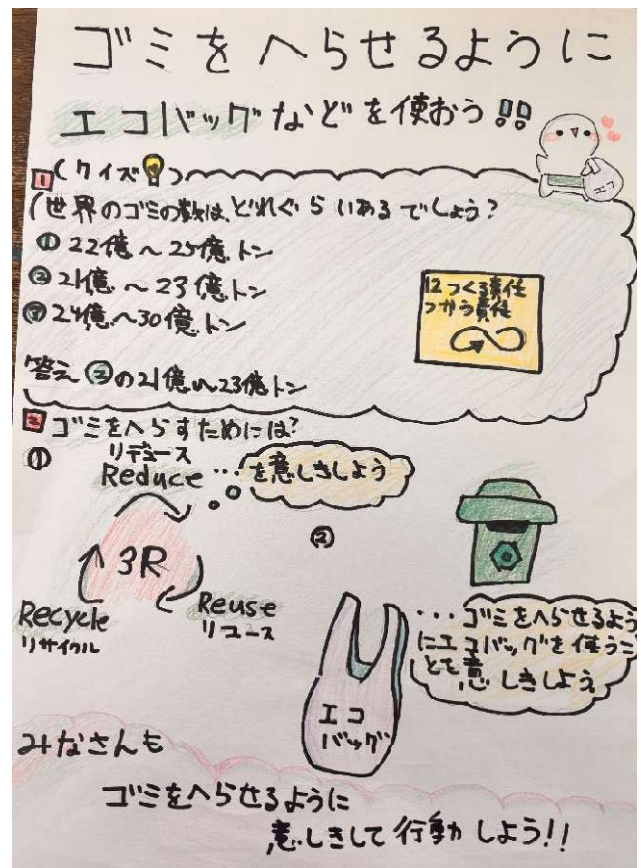 ゴミをへらせるように
エコバッグなどを使おう!!
エコ
1 (クイズ)
世界のゴミの数は、どれぐらいあるでしょう?
① 22億～25億トン
② 21億～23億トン
③ 24億～30億トン
12つくる責任
つかう責任
答え ②の21億～23億トン
2 ゴミをへらすためには?
①
リデュース
Reduce
…を意しきしよう
3R
Recycle
リサイクル
Reuse
リユース
②
…ゴミをへらせるよう
にエコバッグを使うこ
とを意しきしよう
エコ
バッグ
みなさんも
ゴミをへらせるように
意しきして行動しよう!!